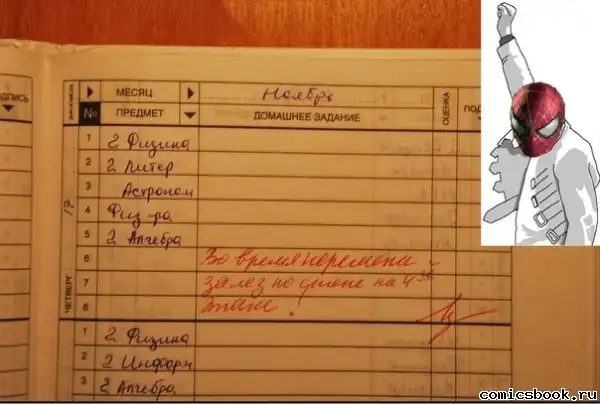 дпись
МЕСЯЦ Ноябрь ОЦЕНКА
№ ПРЕДМЕТ ДОМАШНЕЕ ЗАДАНИЕ ПОД
ЧЕТВЕРГ 17
1 2 Физика
2 2 Литер
3 Астроном
4 Физ-ра
5 2 Алгебра
6 Во время перемены
7 залез по стене на 4ый
8 этаж!
1 2 Физика
2 2 Информ
3 2 Алгебра
comicsbook.ru